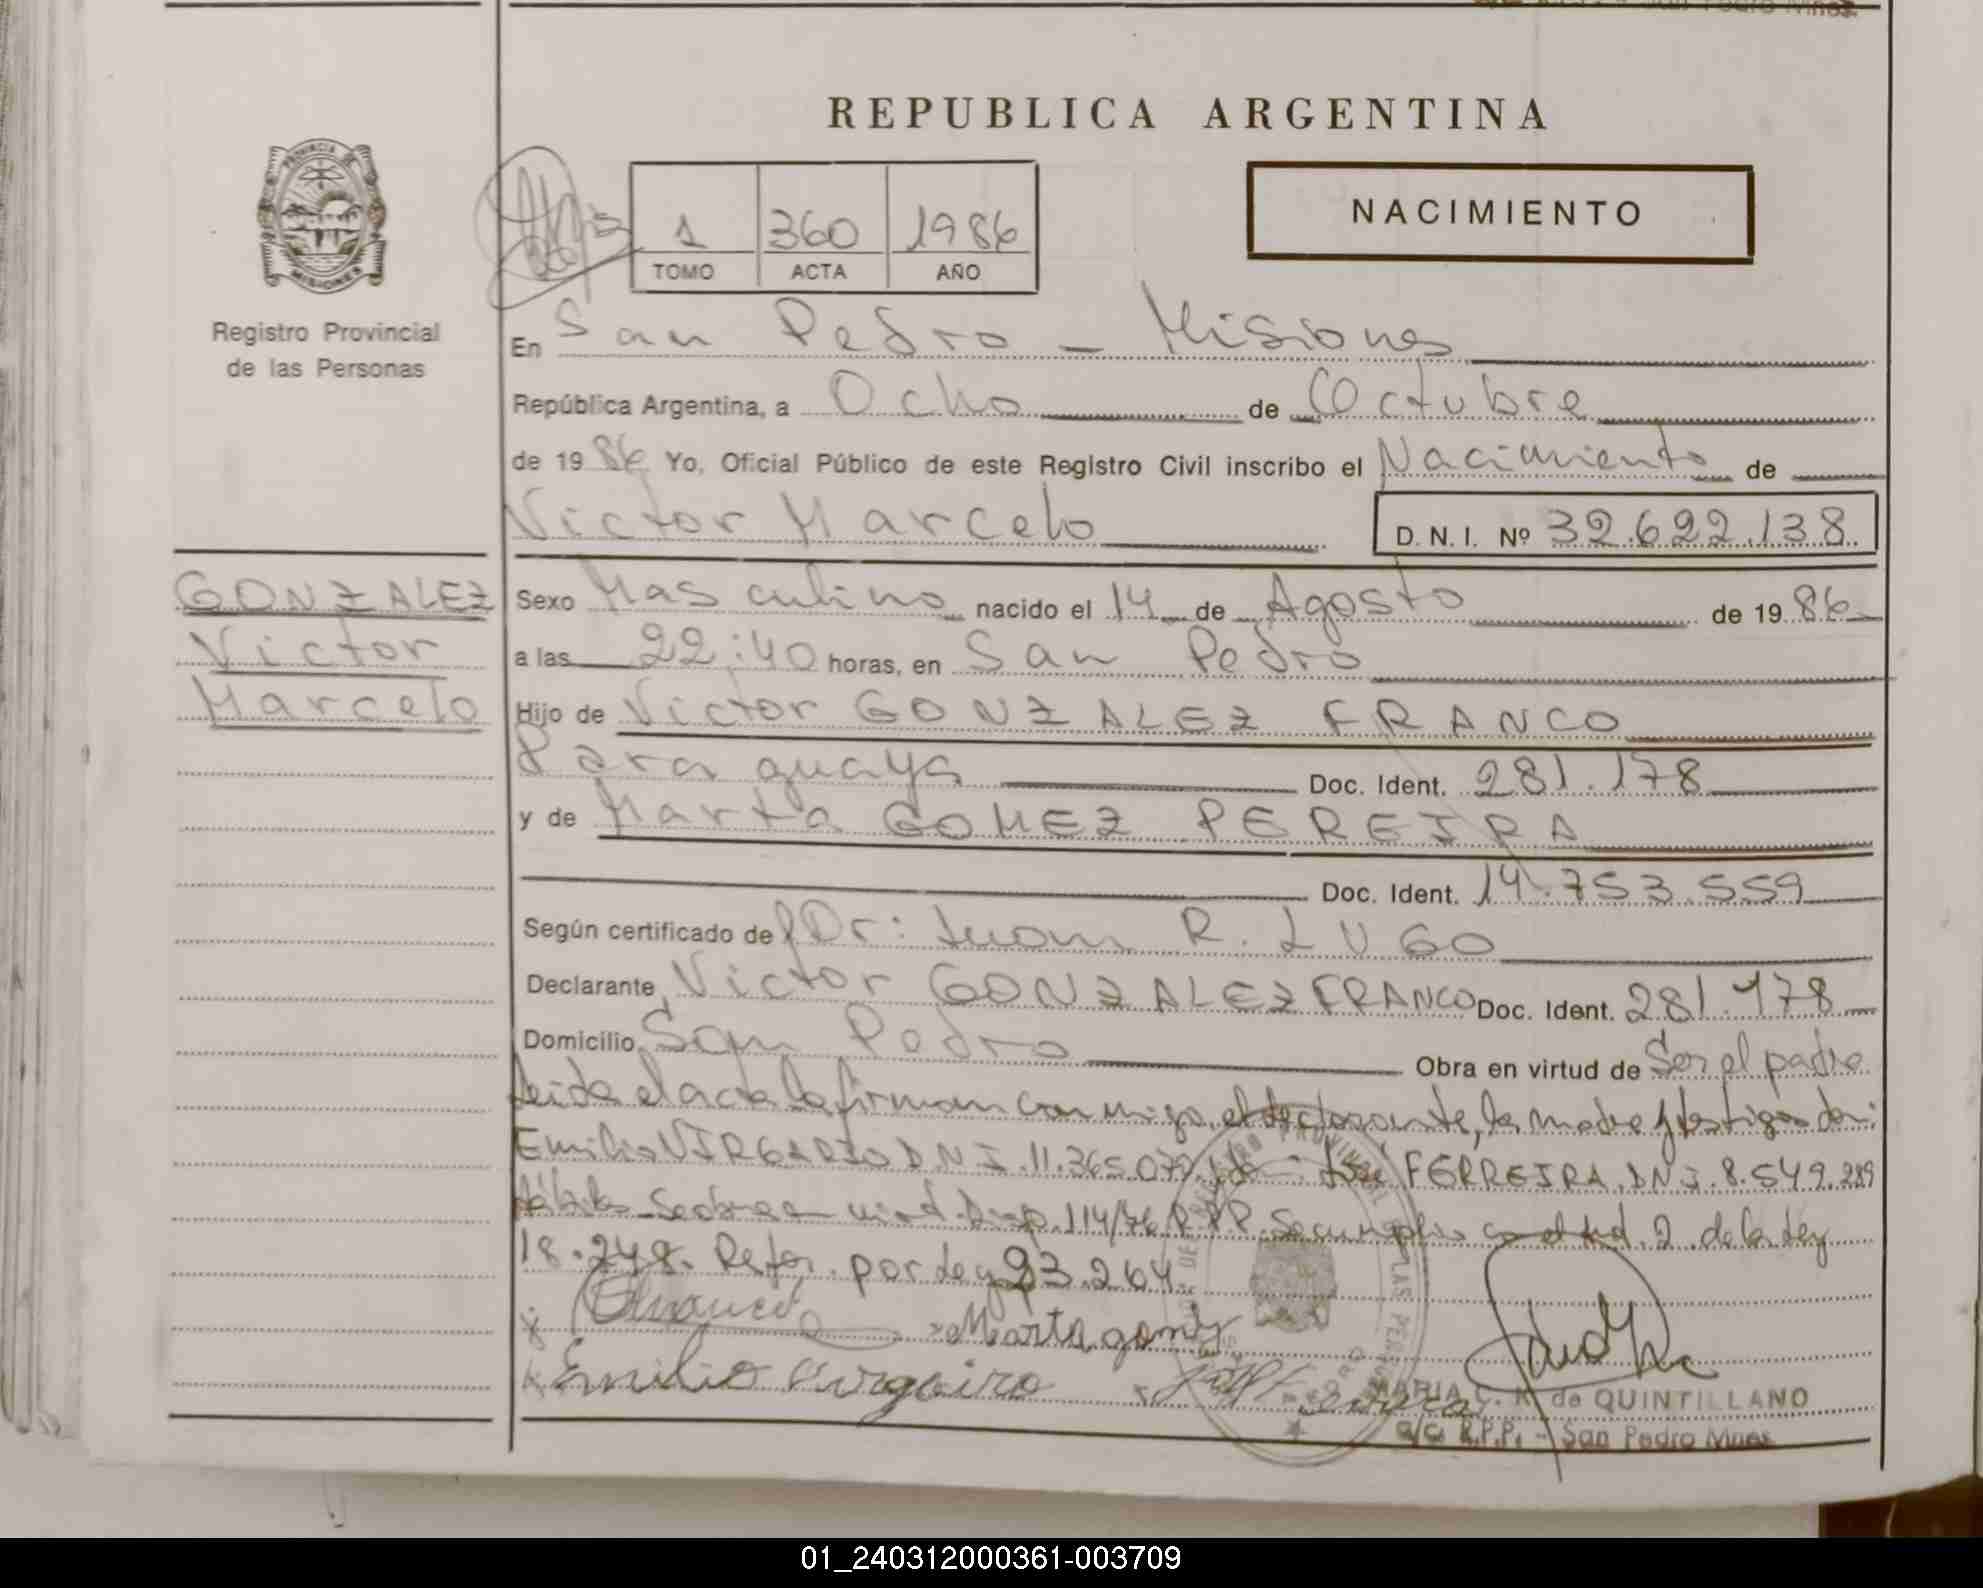 REPUBLICA ARGENTINA
PROVINCIA DE
MISIONES
Registro Provincial
de las Personas
1 360 1986
TOMO ACTA AÑO
NACIMIENTO
En San Pedro - Misiones
República Argentina, a Ocho de Octubre
de 1986 Yo, Oficial Público de este Registro Civil inscribo el Nacimiento de
Victor Marcelo D. N. I. Nº 32.622.138
GONZALEZ
Victor
Marcelo
Sexo Masculino nacido el 14 de Agosto de 1986
a las 22:40 horas, en San Pedro
Hijo de Victor GONZALEZ FRANCO
Paraguaya Doc. Ident. 281.178
y de Marta GOMEZ PEREIRA
Doc. Ident. 14.753.559
Según certificado de Dr: Juan R. LUGO
Declarante Victor GONZALEZ FRANCO Doc. Ident. 281.178
Domicilio San Pedro Obra en virtud de Ser el padre
Leida el acta la firman conmigo, el declarante, la madre y testigos don:
Emilio DNI. 11.365.079 José FERREIRA, DNI. 8.549.289
114/76 R.P.P. Se cumplio con el Art. 2 de la Ley
18.248. Refor. por Ley 23.264
Marta gomez
Emilio
MARIA C. K. de QUINTILLANO
a/c. R.P.P. - San Pedro Mnes.
01_240312000361-003709